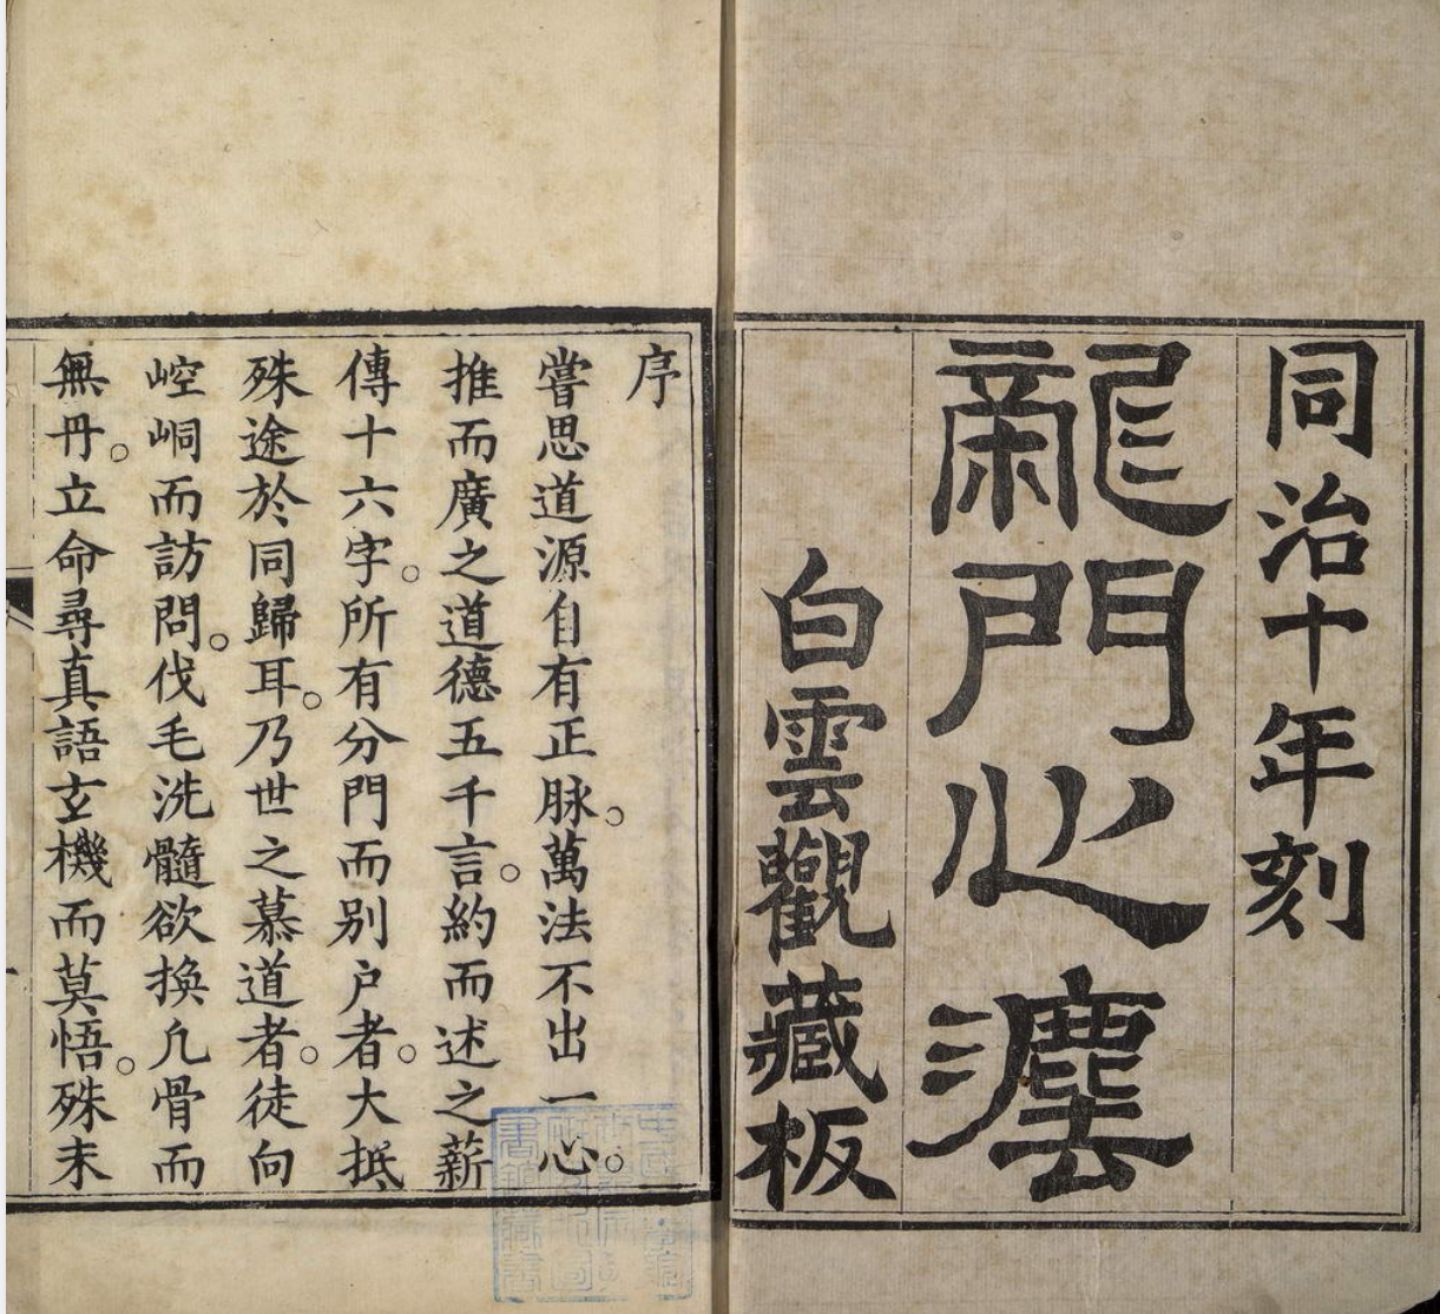 同治十年刻
龍門心灋
白雲觀藏板
序
嘗思道源自有正脉。萬法不出一心。
推而廣之道德五千言。約而述之薪
傳十六字。所有分門而别户者。大抵
殊途於同歸耳。乃世之慕道者。徒向
崆峒而訪問。伐毛洗髓欲換凡骨而
無丹。立命尋真語玄機而莫悟。殊未